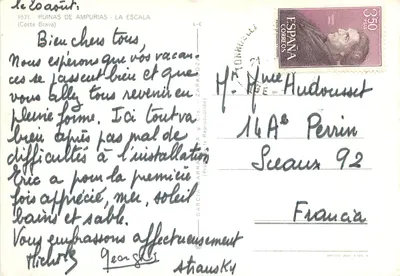 le 20 août.
1977 RUINAS DE AMPURIAS - LA ESCALA
(Costa Brava)
Bien chers tous,
Nous esperons que vos vacan-
ces se passent bien et que
vous allez tous revenir en
pleine forme. Ici tout va
bien après pas mal de
difficultés à l'installation
Eric a pour la première
fois apprécié, mer, soleil
bains et sable.
Vous embrassons affectueusement
Georges
stransky
3,50
PTA
ESPAÑA
CORREOS
M. Mme Hudousset
14A° Perrin
Sceaux 92
Francia